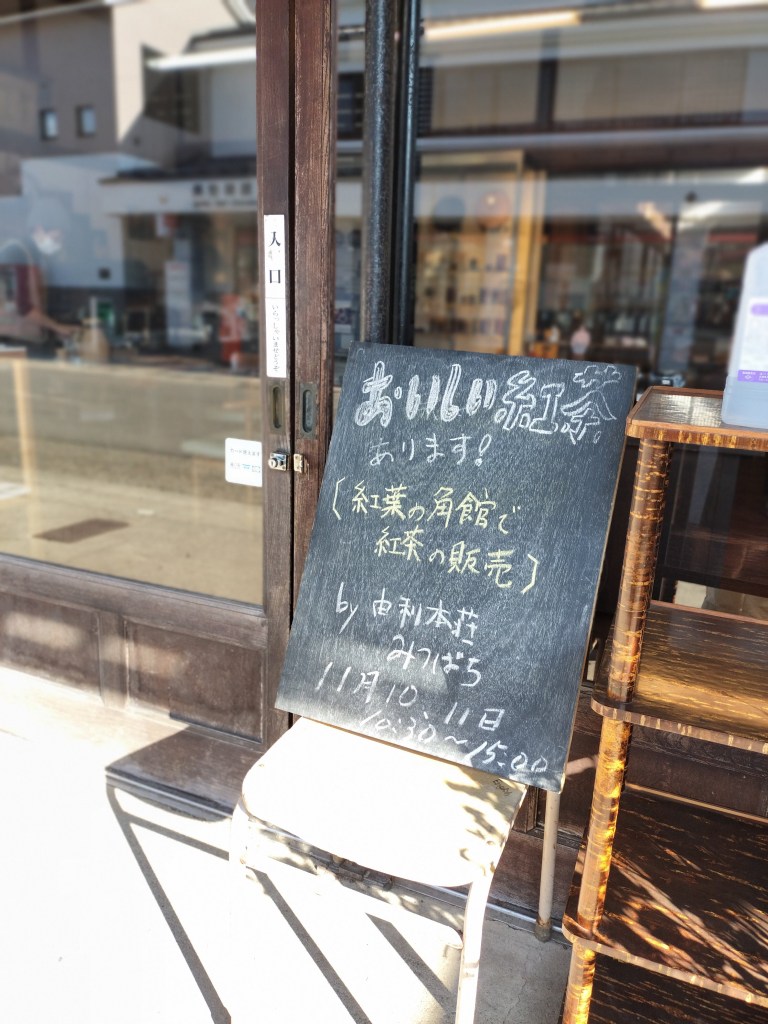 入口
いらっしゃいませどうぞ
おいしい紅茶
あります!
〔紅葉の角館で
紅茶の販売〕
by 由利本荘
みつばち
11月10、11日
10:30〜15:00